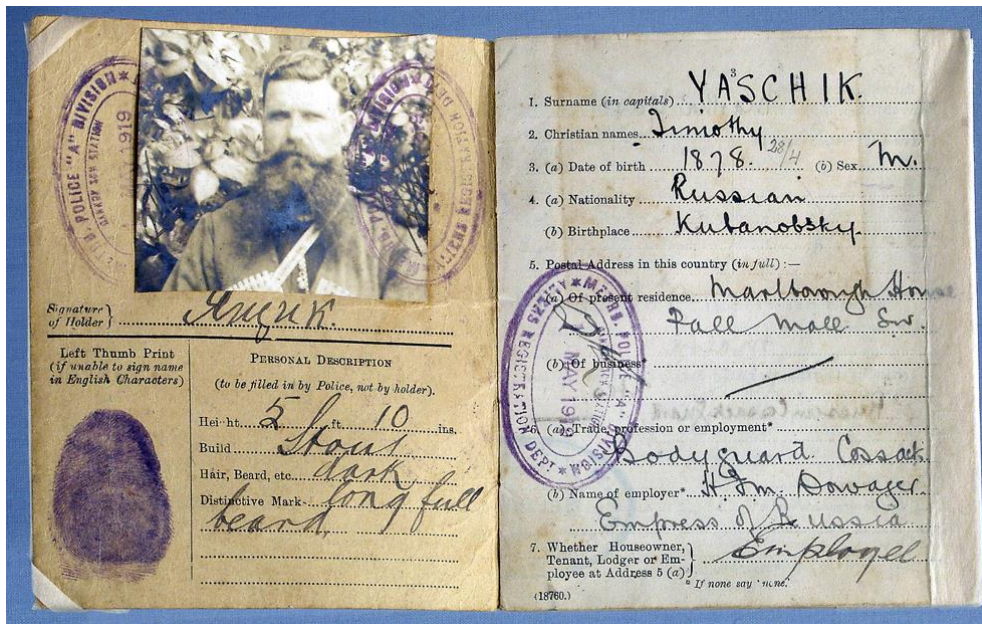 MET.D. POLICE "A" DIVISION
CANNON ROW STATION
1919
ALIENS REGISTRATION DEPT
Signature of Holder }
Left Thumb Print
(if unable to sign name
in English Characters)
PERSONAL DESCRIPTION
(to be filled in by Police, not by holder).
Height 5 ft 10 ins.
Build Stout
Hair, Beard, etc. dark
Distinctive Mark long full
beard.
3
1. Surname (in capitals) YASCHIK.
2. Christian names Timothy
3. (a) Date of birth 1878. 28/4 (b) Sex M.
4. (a) Nationality Russian
(b) Birthplace Kubanobsky.
5. Postal Address in this country (in full) :—
(a) Of present residence Marlborough House
Pall Mall S.W.
(b) Of business*
METRO. POLICE "A" DIVISION
ALIENS REGISTRATION DEPT
MAY 1919
6. (a) Trade, profession or employment*
Bodyguard Cossack
(b) Name of employer* H.I.M. Dowager
Empress of Russia
7. Whether Houseowner,
Tenant, Lodger or Em-
ployee at Address 5 (a) } Employee
* If none say 'none.'
(18760.)